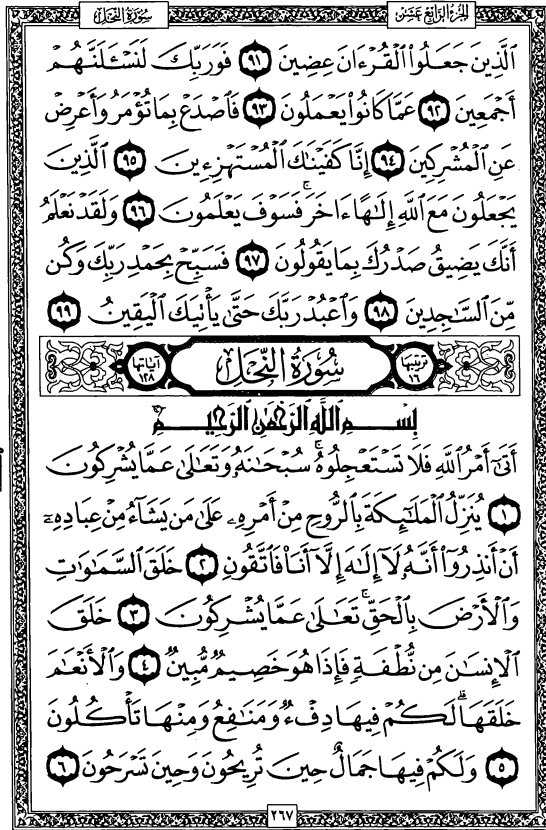 الجزء الرابع عشر
سُورَةُ النَّحْلِ
الَّذِينَ جَعَلُوا الْقُرْءَانَ عِضِينَ ٩١ فَوَرَبِّكَ لَنَسْـَٔلَنَّهُمْ
أَجْمَعِينَ ٩٢ عَمَّا كَانُوا يَعْمَلُونَ ٩٣ فَاصْدَعْ بِمَا تُؤْمَرُ وَأَعْرِضْ
عَنِ الْمُشْرِكِينَ ٩٤ إِنَّا كَفَيْنَاكَ الْمُسْتَهْزِءِينَ ٩٥ الَّذِينَ
يَجْعَلُونَ مَعَ اللَّهِ إِلَاهًا ءَاخَرَ ۚ فَسَوْفَ يَعْلَمُونَ ٩٦ وَلَقَدْ نَعْلَمُ
أَنَّكَ يَضِيقُ صَدْرُكَ بِمَا يَقُولُونَ ٩٧ فَسَبِّحْ بِحَمْدِ رَبِّكَ وَكُن
مِّنَ السَّاجِدِينَ ٩٨ وَاعْبُدْ رَبَّكَ حَتَّىٰ يَأْتِيَكَ الْيَقِينُ ٩٩
ترتيبها ١٦ سُورَةُ النَّحْلِ آياتها ١٢٨
بِسْمِ اللَّهِ الرَّحْمَٰنِ الرَّحِيمِ
أَتَىٰٓ أَمْرُ اللَّهِ فَلَا تَسْتَعْجِلُوهُ ۚ سُبْحَانَهُۥ وَتَعَالَىٰ عَمَّا يُشْرِكُونَ
١ يُنَزِّلُ الْمَلَٰٓئِكَةَ بِالرُّوحِ مِنْ أَمْرِهِۦ عَلَىٰ مَن يَشَآءُ مِنْ عِبَادِهِۦٓ
أَنْ أَنذِرُوٓا أَنَّهُۥ لَآ إِلَٰهَ إِلَّآ أَنَا فَاتَّقُونِ ٢ خَلَقَ السَّمَاوَاتِ
وَالْأَرْضَ بِالْحَقِّ ۚ تَعَالَىٰ عَمَّا يُشْرِكُونَ ٣ خَلَقَ
الْإِنسَانَ مِن نُّطْفَةٍ فَإِذَا هُوَ خَصِيمٌ مُّبِينٌ ٤ وَالْأَنْعَامَ
خَلَقَهَا ۗ لَكُمْ فِيهَا دِفْءٌ وَمَنَافِعُ وَمِنْهَا تَأْكُلُونَ
٥ وَلَكُمْ فِيهَا جَمَالٌ حِينَ تُرِيحُونَ وَحِينَ تَسْرَحُونَ ٦
٢٦٧